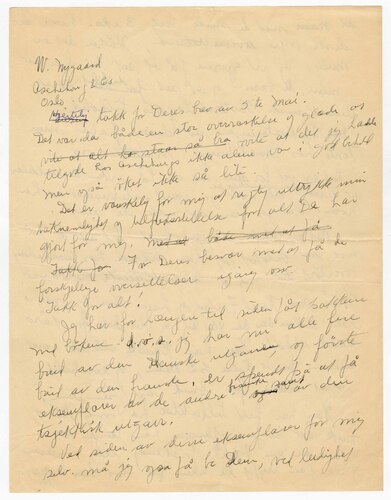 W. Nygaard
Aschehoug & Co
Oslo.
Hjertelig takk for Deres brev av 3 te Mai.
Det var da både en stor overraskelse og glede at
vite at alt to staar så bra vite at det jeg hadde
tilgode hos Aschehoug ikke alene var i god behold
men også öket ikke så lite.
Det er vanskelig for mig at rigtig uttrykke min
taknemlighet og for alt De har
gjort for mig. Med at både med at få
Takk for For Deres besvær med at få de
forskjellige oversettelser igang osv.
Takk for alt!
Jeg har for længere tid siden fåt
med bökene d.v.s. jeg har nu alle fire
bind av den danske utgaven, og förste
bind av den franske, er spendt på at få
eksemplarer av de andre og samt av den
tsjekkisk utgave.
Ved siden av disse eksemplarer for mig
selv. må jeg også få be Dem, ved leilighet